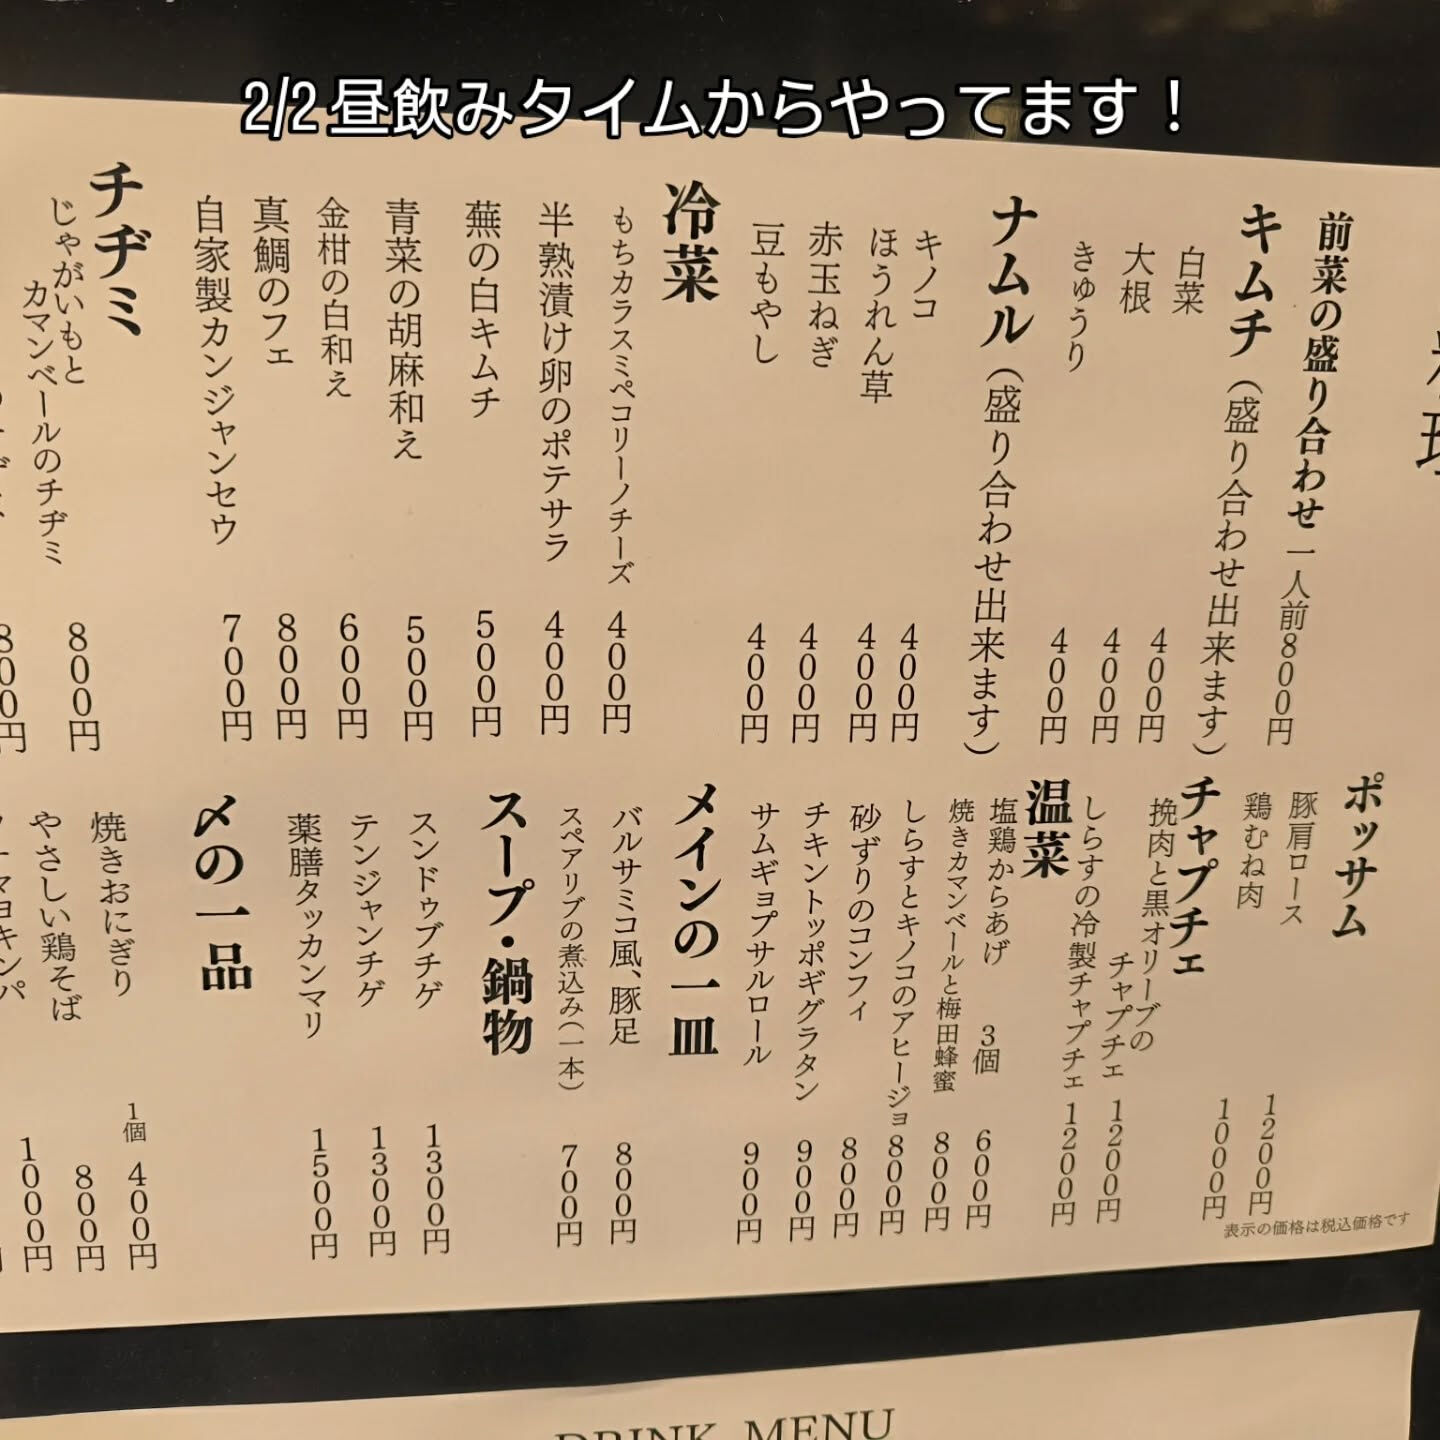 2/2 昼飲みタイムからやってます！
前菜の盛り合わせ 一人前800円
キムチ（盛り合わせ出来ます）
白菜 400円
大根 400円
きゅうり 400円
ナムル（盛り合わせ出来ます）
キノコ 400円
ほうれん草 400円
赤玉ねぎ 400円
豆もやし 400円
冷菜
もちカラスミペコリーノチーズ 400円
半熟漬け卵のポテサラ 400円
蕪の白キムチ 500円
青菜の胡麻和え 500円
金柑の白和え 600円
真鯛のフェ 800円
自家製カンジャンセウ 700円
チヂミ
じゃがいもと
カマンベールのチヂミ 800円
800円
ポッサム
豚肩ロース 1200円
鶏むね肉 1000円
チャプチェ
挽肉と黒オリーブの
チャプチェ 1200円
しらすの冷製チャプチェ 1200円
温菜
塩鶏からあげ 3個 600円
焼きカマンベールと梅田蜂蜜 800円
しらすとキノコのアヒージョ 800円
砂ずりのコンフィ 800円
チキントッポギグラタン 900円
サムギョプサルロール 900円
メインの一皿
バルサミコ風、豚足 800円
スペアリブの煮込み(一本) 700円
スープ・鍋物
スンドゥブチゲ 1300円
テンジャンチゲ 1300円
薬膳タッカンマリ 1500円
〆の一品
焼きおにぎり 1個 400円
やさしい鶏そば 800円
1000円
表示の価格は税込価格です
DRINK MENU